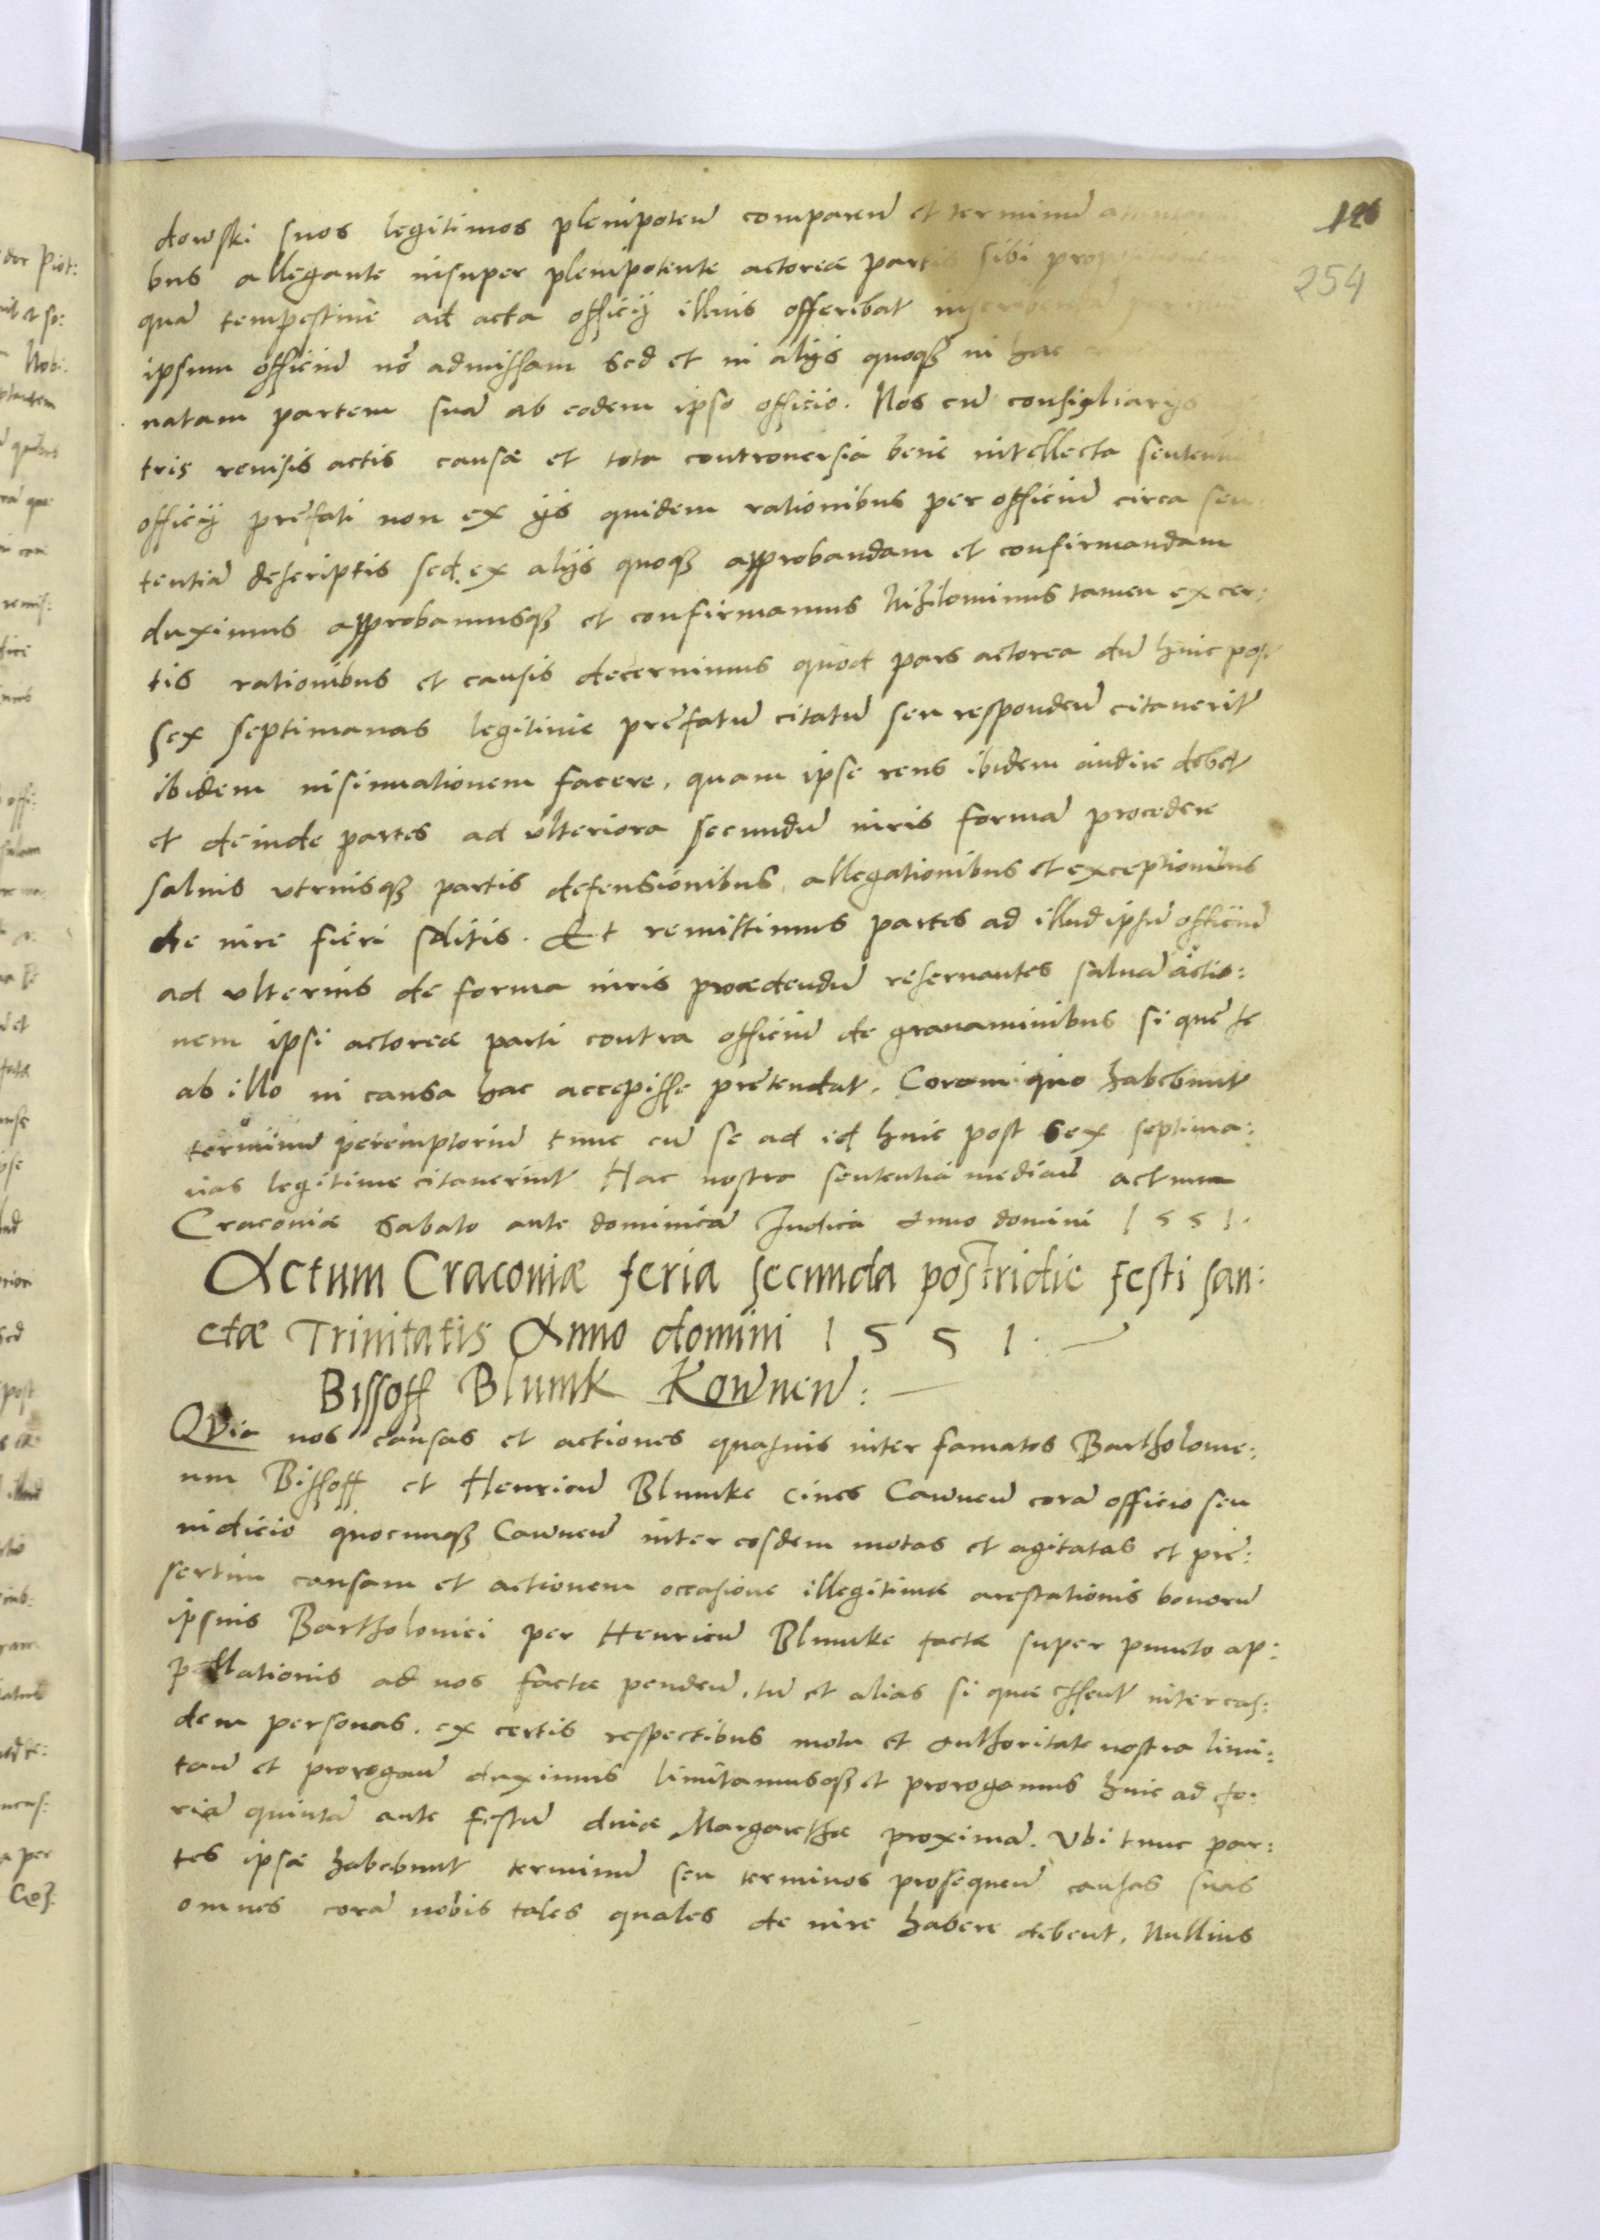 126
254
dowski suos legitimos plenipoteñ compareñ et terminũ
bus allegante insuper plenipotente actoreæ partis sibi
quã tempestiue ad acta officij illius offeribat
ipsum officiũ nõ admissam sed et in alijs quoq3 in hac
natam partem suã ab eodem ipso officio. Nos cũ consigliarijs
tris reuisis actis causæ et tota controuersia bene intellecta sententiã
officij prefati non ex ijs quidem rationibus per officiũ circa sen
tentiã descriptis sed ex alijs quoq3 approbandam et confirmandam
duximus approbamusq3 et confirmamus Nihilominus tamen ex cer:
tis rationibus et causis decernimus quod pars actorea dũ hinc post
sex septimanas legitime prefatũ citatũ seu respondeñ citauerit
ibidem insinuationem facere, quam ipse reus ibidem audire debet
et deinde partes ad vlteriora secundũ iuris formã procedere
saluis vtriusq3 partis defensionibus, allegationibus et exceptionibus
de iure fieri solitis. Et remittimus partes ad illud ipsũ officiũ
ad vlterius de forma iuris procedendũ reseruantes saluã actio:
nem ipsi actoreæ parti contra officiũ de grauaminibus si quæ se
ab illo in causa hac accepisse pretendat, Coram quo habebunt
terminũ peremptoriũ tunc cũ se ad id hinc post sex septima:
nas legitime citauerint Hac nostra sententia mediañ actum
Cracouiæ Sabato ante dominicã Iudica Anno domini 1551.
Actum Cracouiæ feria secunda postridie festi san:
ctæ Trinitatis Anno domini 1551.
Bissoff Blumk Kowneñ:
QVia nos causas et actiones quasuis inter famatos Bartholome:
um Bissoff et Henricũ Blumke ciues Cawneñ corã officio seu
iudicio quocunq3 Cawneñ inter eosdem motas et agitatas et prę:
sertim causam et actionem occasione illegitimæ arestationis bonorũ
ipsius Bartholomei per Henricũ Blumke factæ super puncto ap:
pellationis ad nos factæ pendeñ, tũ et alias si quæ essent inter eas:
dem personas, ex certis respectibus motu et authoritate nostra limi:
tañ et prorogañ duximus limitamusq3 et prorogamus hinc ad fe:
riã quintã ante festũ diuæ Margarethæ proximã. Vbi tunc par:
tes ipsæ habebunt terminũ seu terminos prosequeñ causas suas
omnes corã nobis tales quales de iure habere debent, Nullius